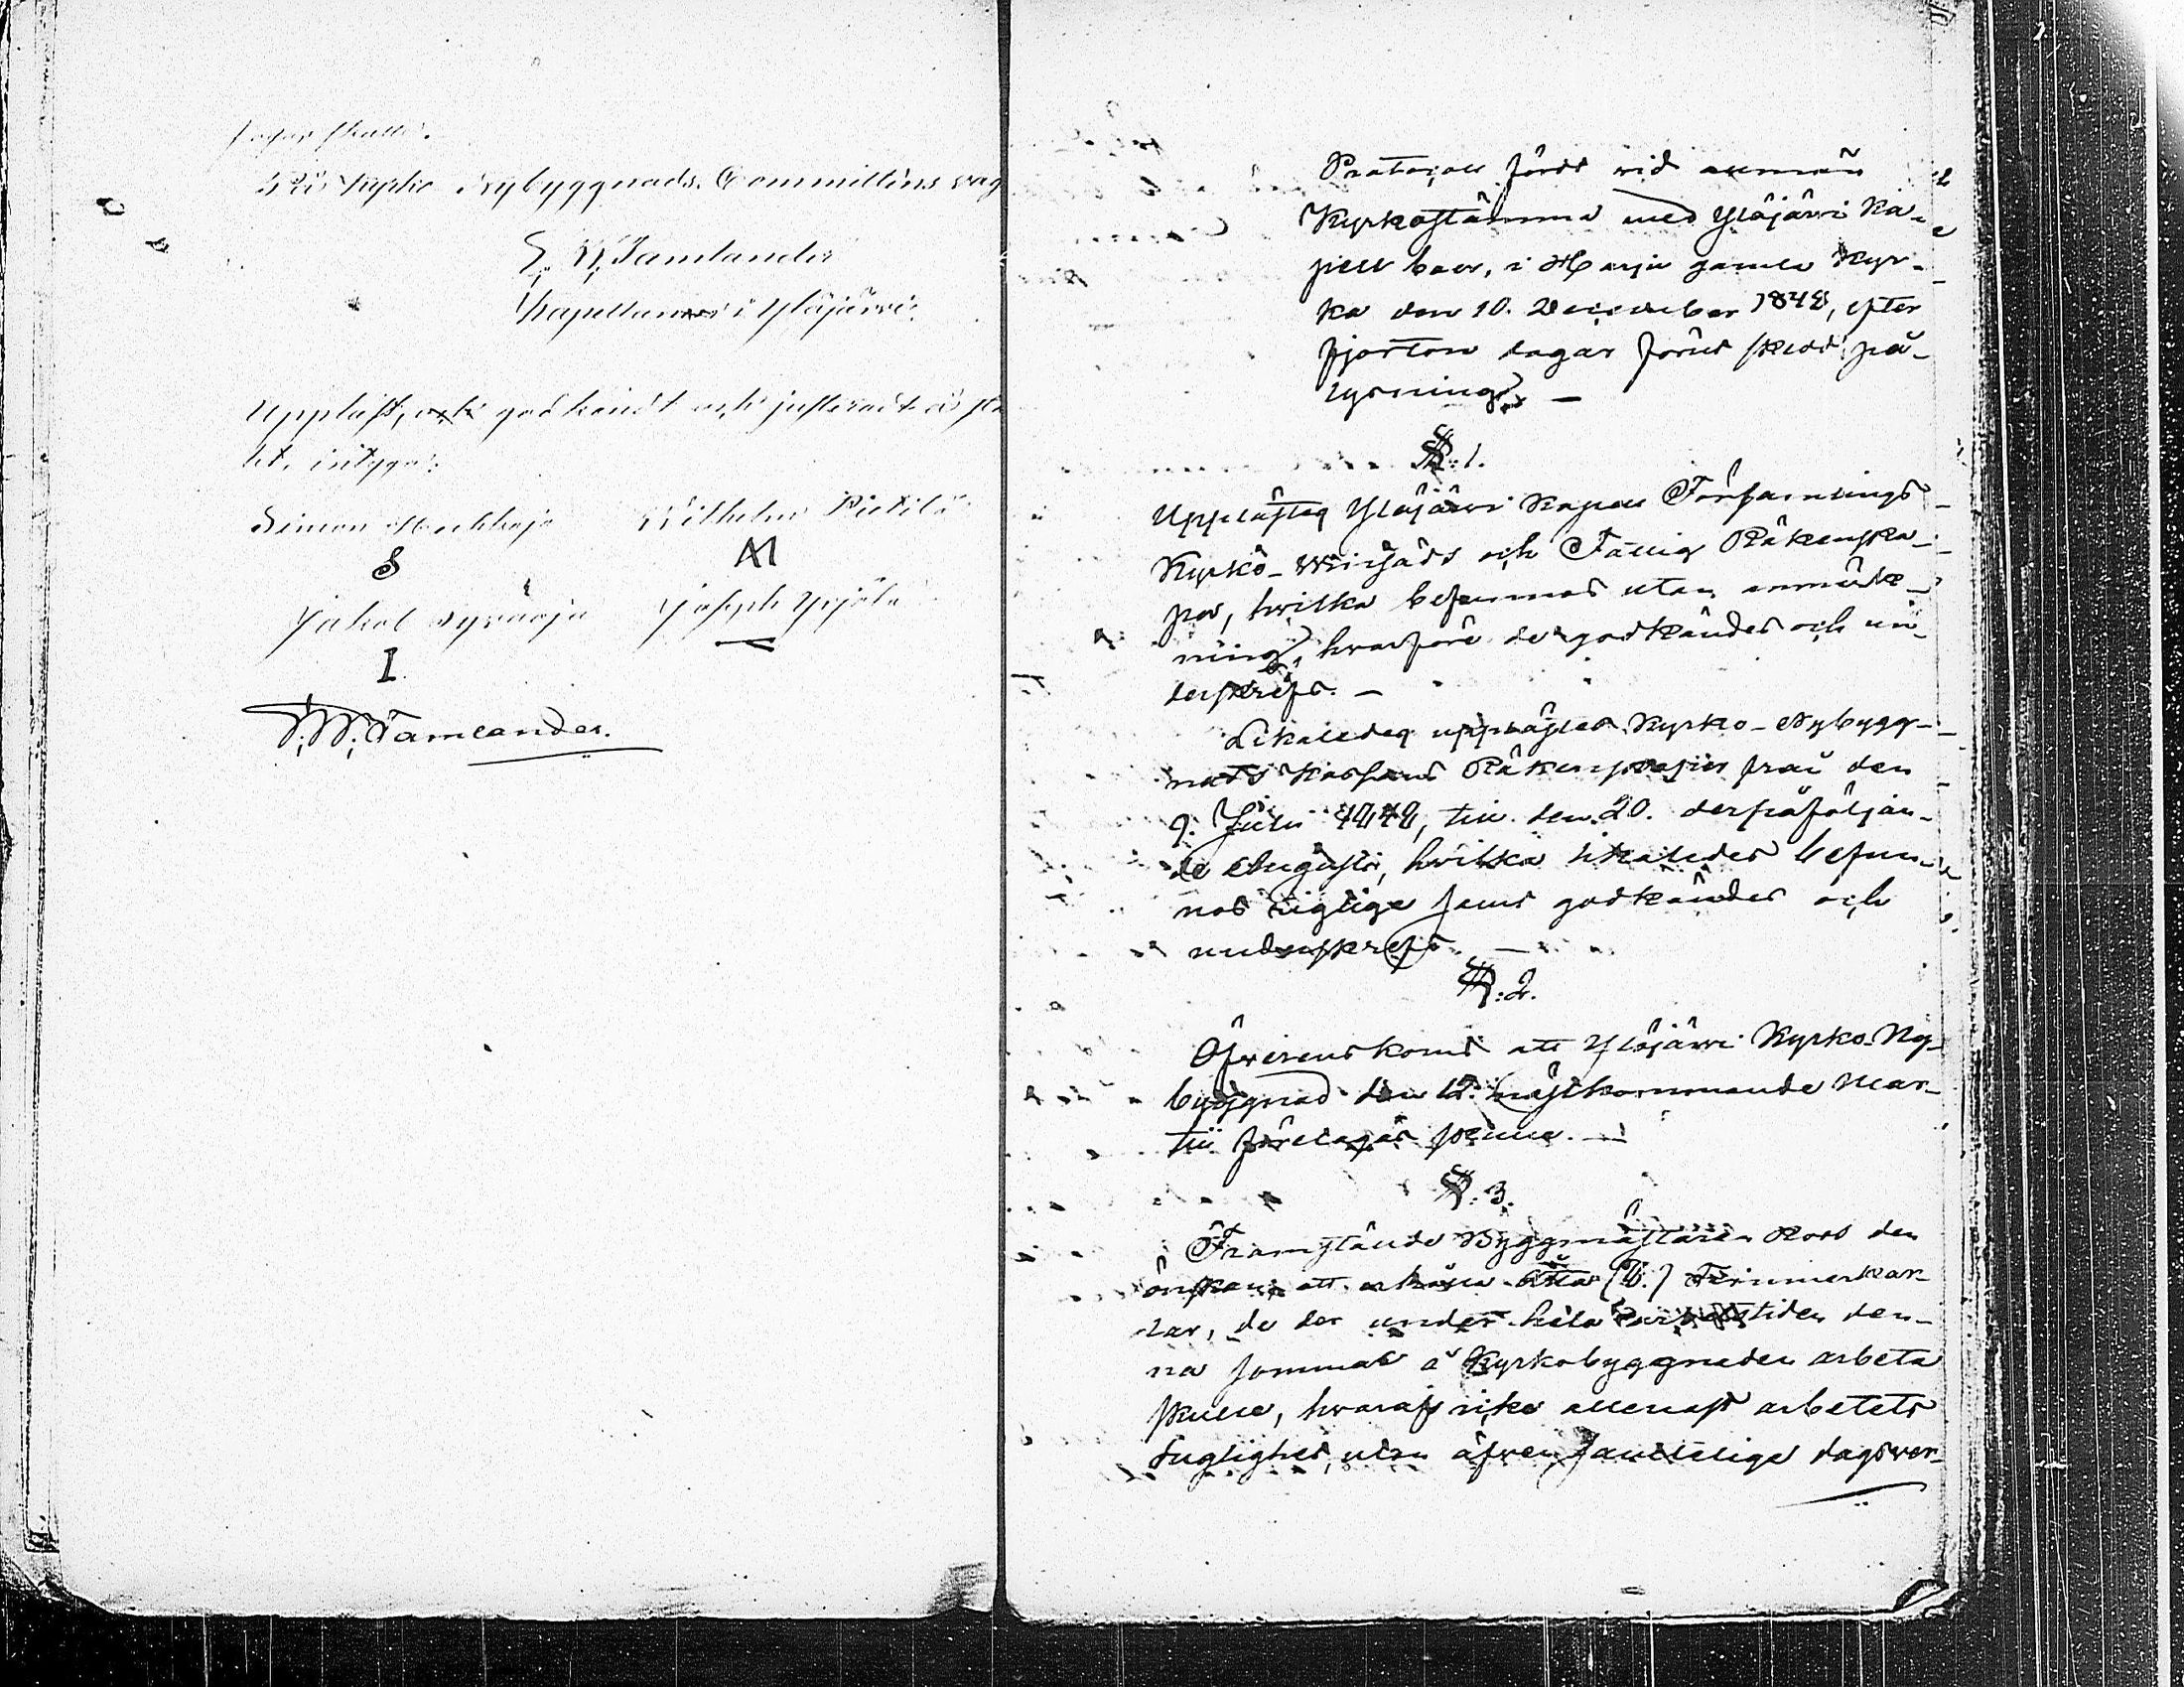 På Kyrko Nybyggnads Committéns väg
Kapellan i Ylöjärvi.
Uppläst, och godkändt och justeradt
intyga:
Simon Wilhelm Pietilä
S M
Jakob Joseph Yrjölä
I —
F. W. Tamlander.
Protocoll fördt vid allmän
Kyrkostämma med Ylöjärvi Ka-
pell boer, i Harju gamla Kyr-
ka den 10. December 1848, efter
fjorton dagar förut skedd på-
lysning. —
§. 1.
Upplästes Ylöjärvi Kapell Församlings
Kyrko- och Fattig Räkenska-
per, hvilka befunnos utan anmärk-
ning, hvarföre de godkändes och un-
derskrefs. —
Likaledes upplästes Kyrko-Nybygg-
nads Kassans Räkenskaper från den
9. Julii 1848, till den 20. derpåföljan-
de Augusti, hvilka likaledes befun-
nos rigtige samt godkändes och
underskrefs. —
§. 2.
Öfverenskoms att Ylöjärvi Kyrko-Ny-
byggnad den 12. nästkommande Mar-
tii företagas skulle. —
§. 3.
Framstälde Byggmästaren Roos den
önskan att erhålla åtta (8.) Timmerkar-
lar, de der under hela arbetstiden den-
na sommar å Kyrkobyggnaden arbeta
skulle, hvaraf icke allenast arbetets
duglighet, utan äfven samtelige dagsver-